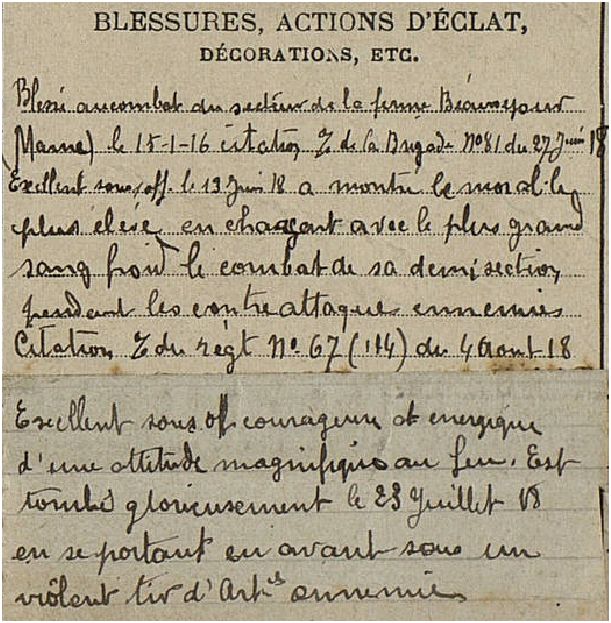 BLESSURES, ACTIONS D'ÉCLAT,
DÉCORATIONS, ETC.
Blessé au combat du secteur de la ferme Beauséjour
Marne) le 15-1-16 citation % de la Brigade Nº 81 du 27 Juin 18
Excellent sous off. le 13 Juin 18 a montré le moral le
plus élevé en
avec le plus grand
sang froid le combat de sa demi section
pendant les contre attaques ennemies
Citation % du règt Nº 67 (114) du 4 Aout 18
Excellent sous off courageux et energique
d'une attitude magnifique au feu. Est
tombé glorieusement le 23 Juillet 18
en se portant en avant sous un
violent tir d'Artie ennemie